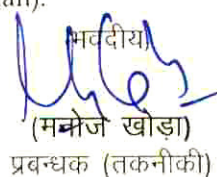 an).
भवदीय
(मनोज खोड़ा)
प्रबन्धक (तकनीकी)